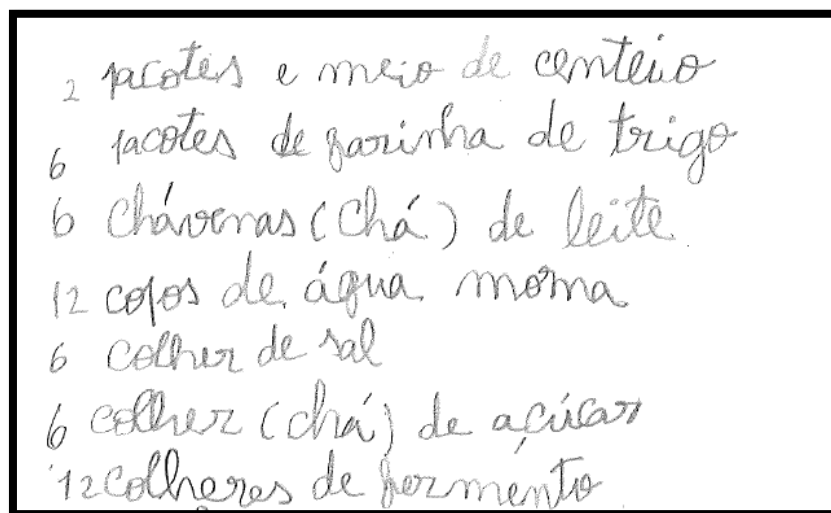 2 pacotes e meio de centeio
6 pacotes de farinha de trigo
6 chávenas (chá) de leite
12 copos de água morna
6 colher de sal
6 colher (chá) de açúcar
12 colheres de fermento